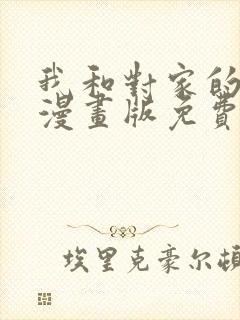 我和對家的
漫畫版免費
埃里克豪尔頓